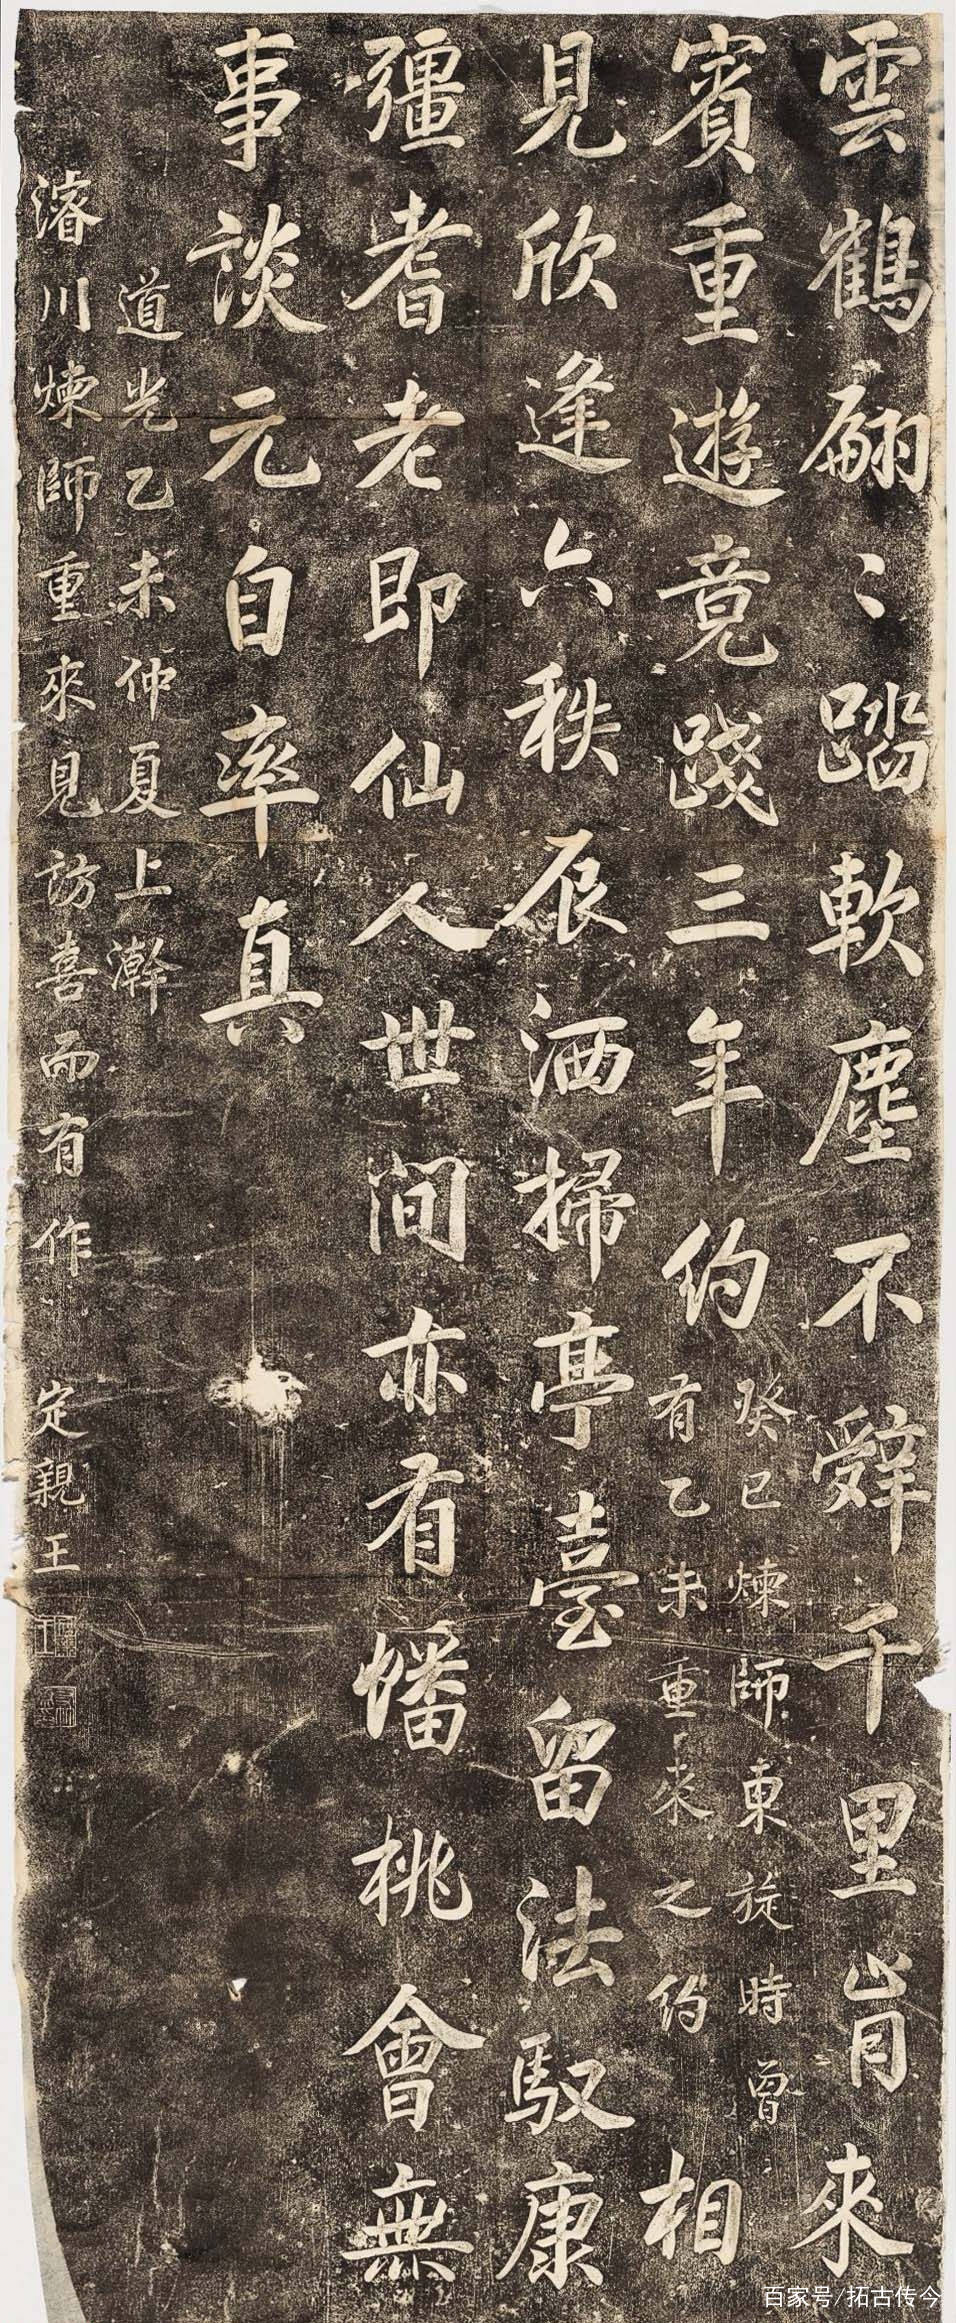 雲鶴翩〻踏軟塵不辤千里肯來
賓重遊竟踐三年約
癸巳煉師東旋時曾
有乙未重來之約
相
見欣逢六秩辰洒掃亭臺留法馭康
彊耆老即仙人世間亦有蟠桃會無
事談元自率真
道光乙未仲夏上澣
濬川煉師重來見訪喜而有作 定親王
百家号/拓古传今